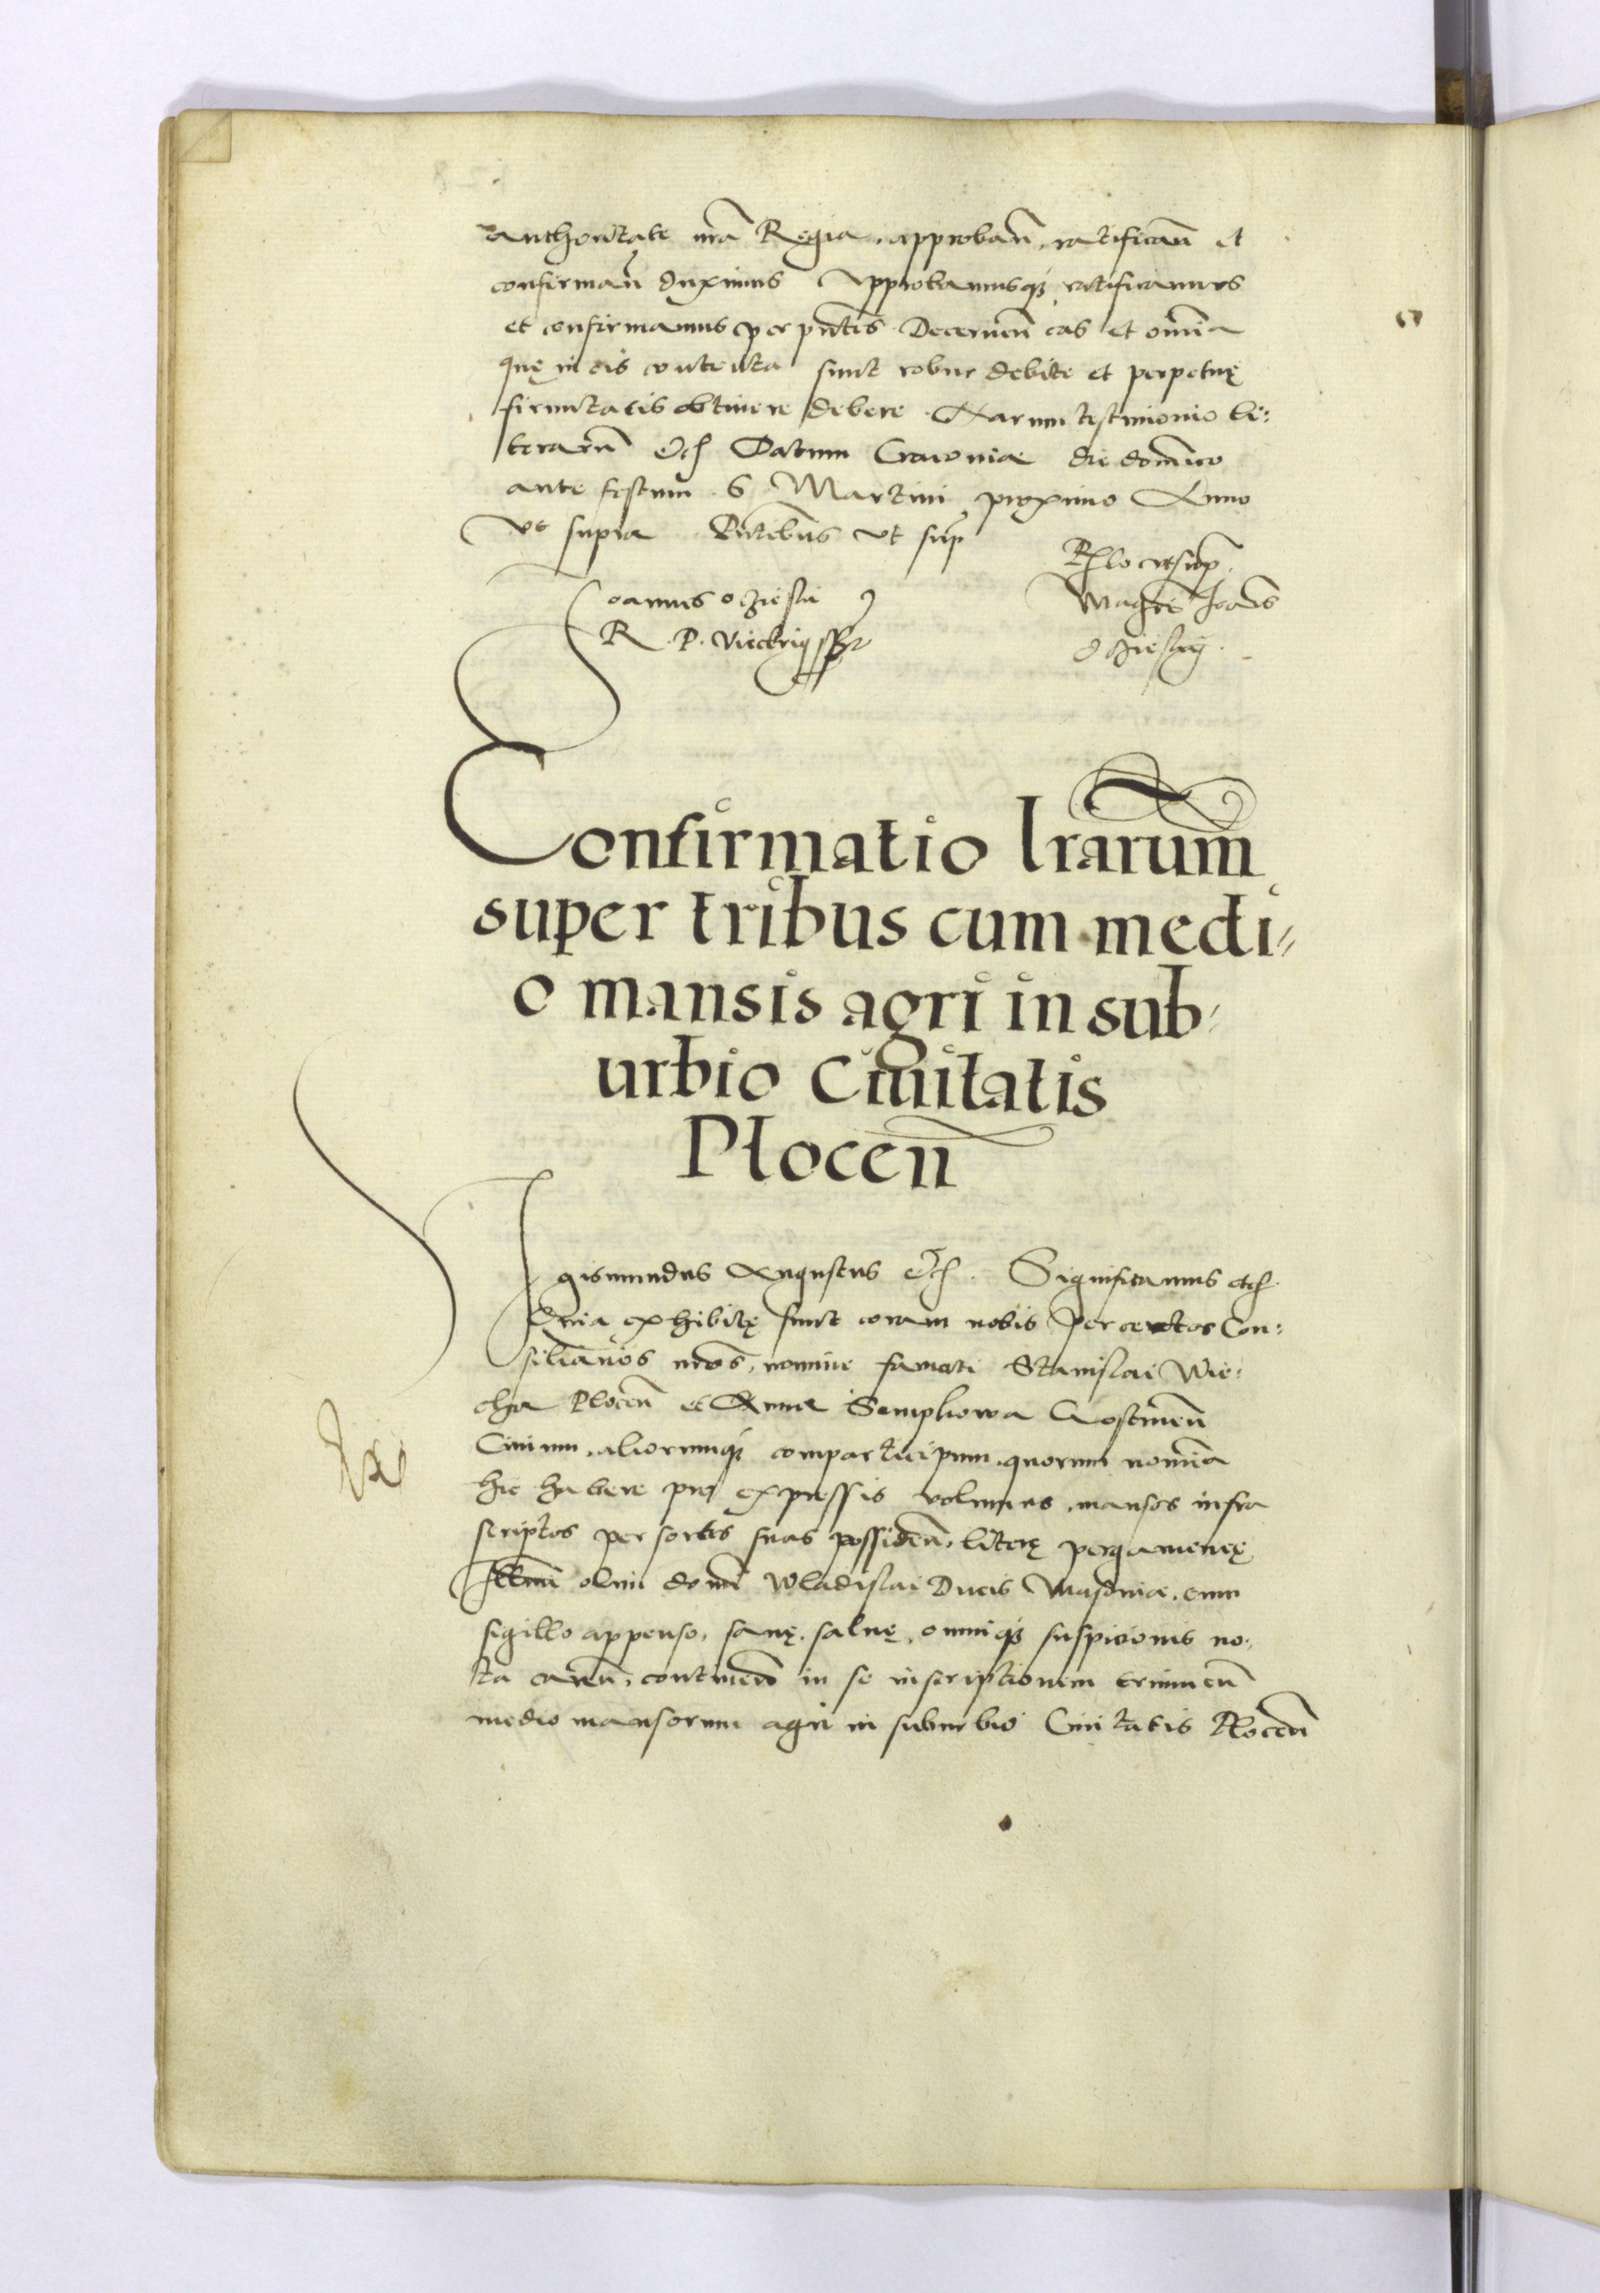 authoritate nrã Regia, approbañ, ratificañ et
confirmañ duximus Approbamusq3 ratificamus
et confirmamus per pñtes. Decerneñ eas et omnia
quę in eis contenta sunt robur debitę et perpetuę
firmitatis obtinere debere. Harum testimonio li=
terarũ etc̃ Datum Cracoviæ die dominico
ante festum S Martini proximo Anno
ut supra Pñtibus ut sup
Joannes oczieski
R. P. Vicecñ sßt
Rlo cñ sup
Magci Joañis
Oczieskij.
Confirmatio lrãrum
super tribus cum medi=
o mansis agri in sub=
urbio Ciuitatis
Plocen̄
Sigismundus Augustus etc̃. Significamus etc̃.
Quia exhibitę sunt coram nobis per certos Con=
siliarios nrõs, nomine famati Stanislai Wie=
cha Ploceñ et Annæ Sampliowa Gostineñ
Ciuium, aliorumq3 comparticipum, quorum nomina
hic habere pro expressis volumus, mansos infra
scriptos per sortes suas possideñ, literę pergameneę
Illmi olim domi Wladislai Ducis Masouiæ, cum
sigillo appenso, sanę, saluę, omniq3 suspicionis no=
ta careñ, contineñ in se inscriptionem trium cũ
medio mansorum agri in suburbio Ciuitatis Ploceñ